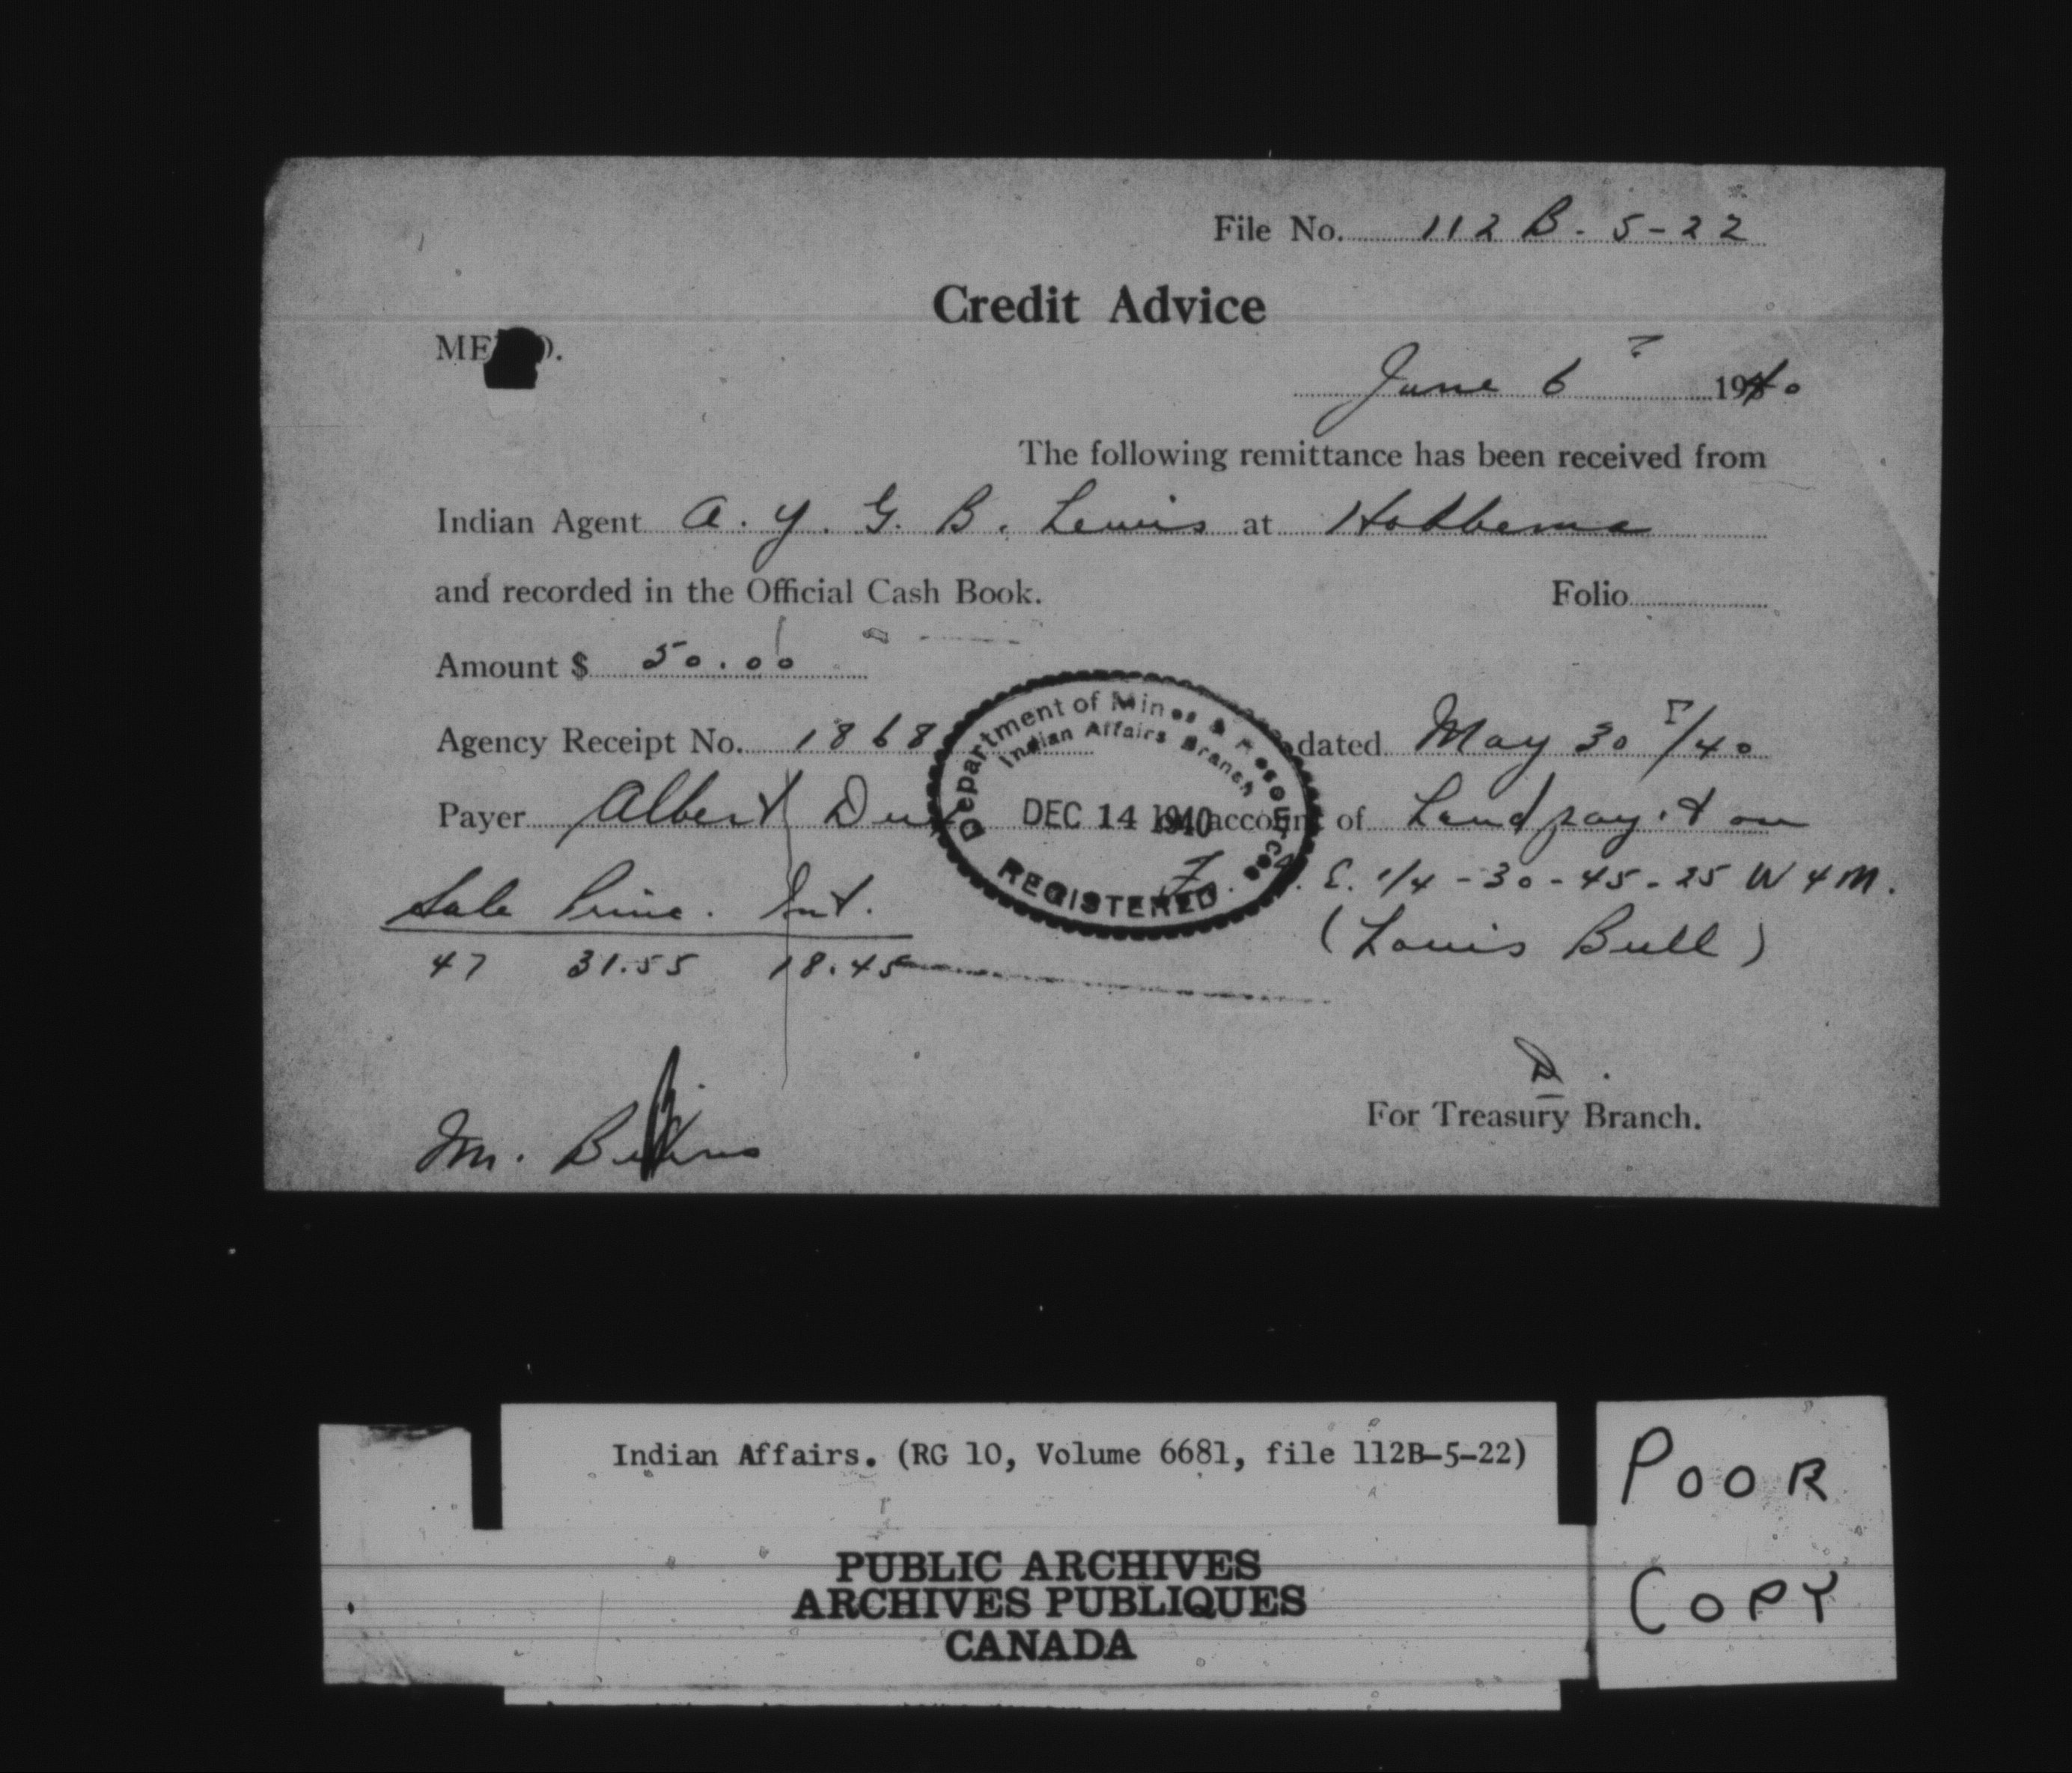 File No. 112 B. 5-22
Credit Advice
MEMO.
June 6 1940
The following remittance has been received from
Indian Agent A. Y. G. B. Lewis at Hobbema
and recorded in the Official Cash Book. Folio
Amount $ 50.00
Agency Receipt No. 1868 dated May 30/40
Payer Albert account of Land pay't on
E. 1/4 - 30 - 45 - 25 W 4 M.
Sale Princ. Int.
(Louis Bull)
47 31.55 18.45
Department of Mines & Resources
Indian Affairs Branch
DEC 14 1940
REGISTERED
For Treasury Branch.
Indian Affairs. (RG 10, Volume 6681, file 112B-5-22)
PUBLIC ARCHIVES
ARCHIVES PUBLIQUES
CANADA
POOR
COPY